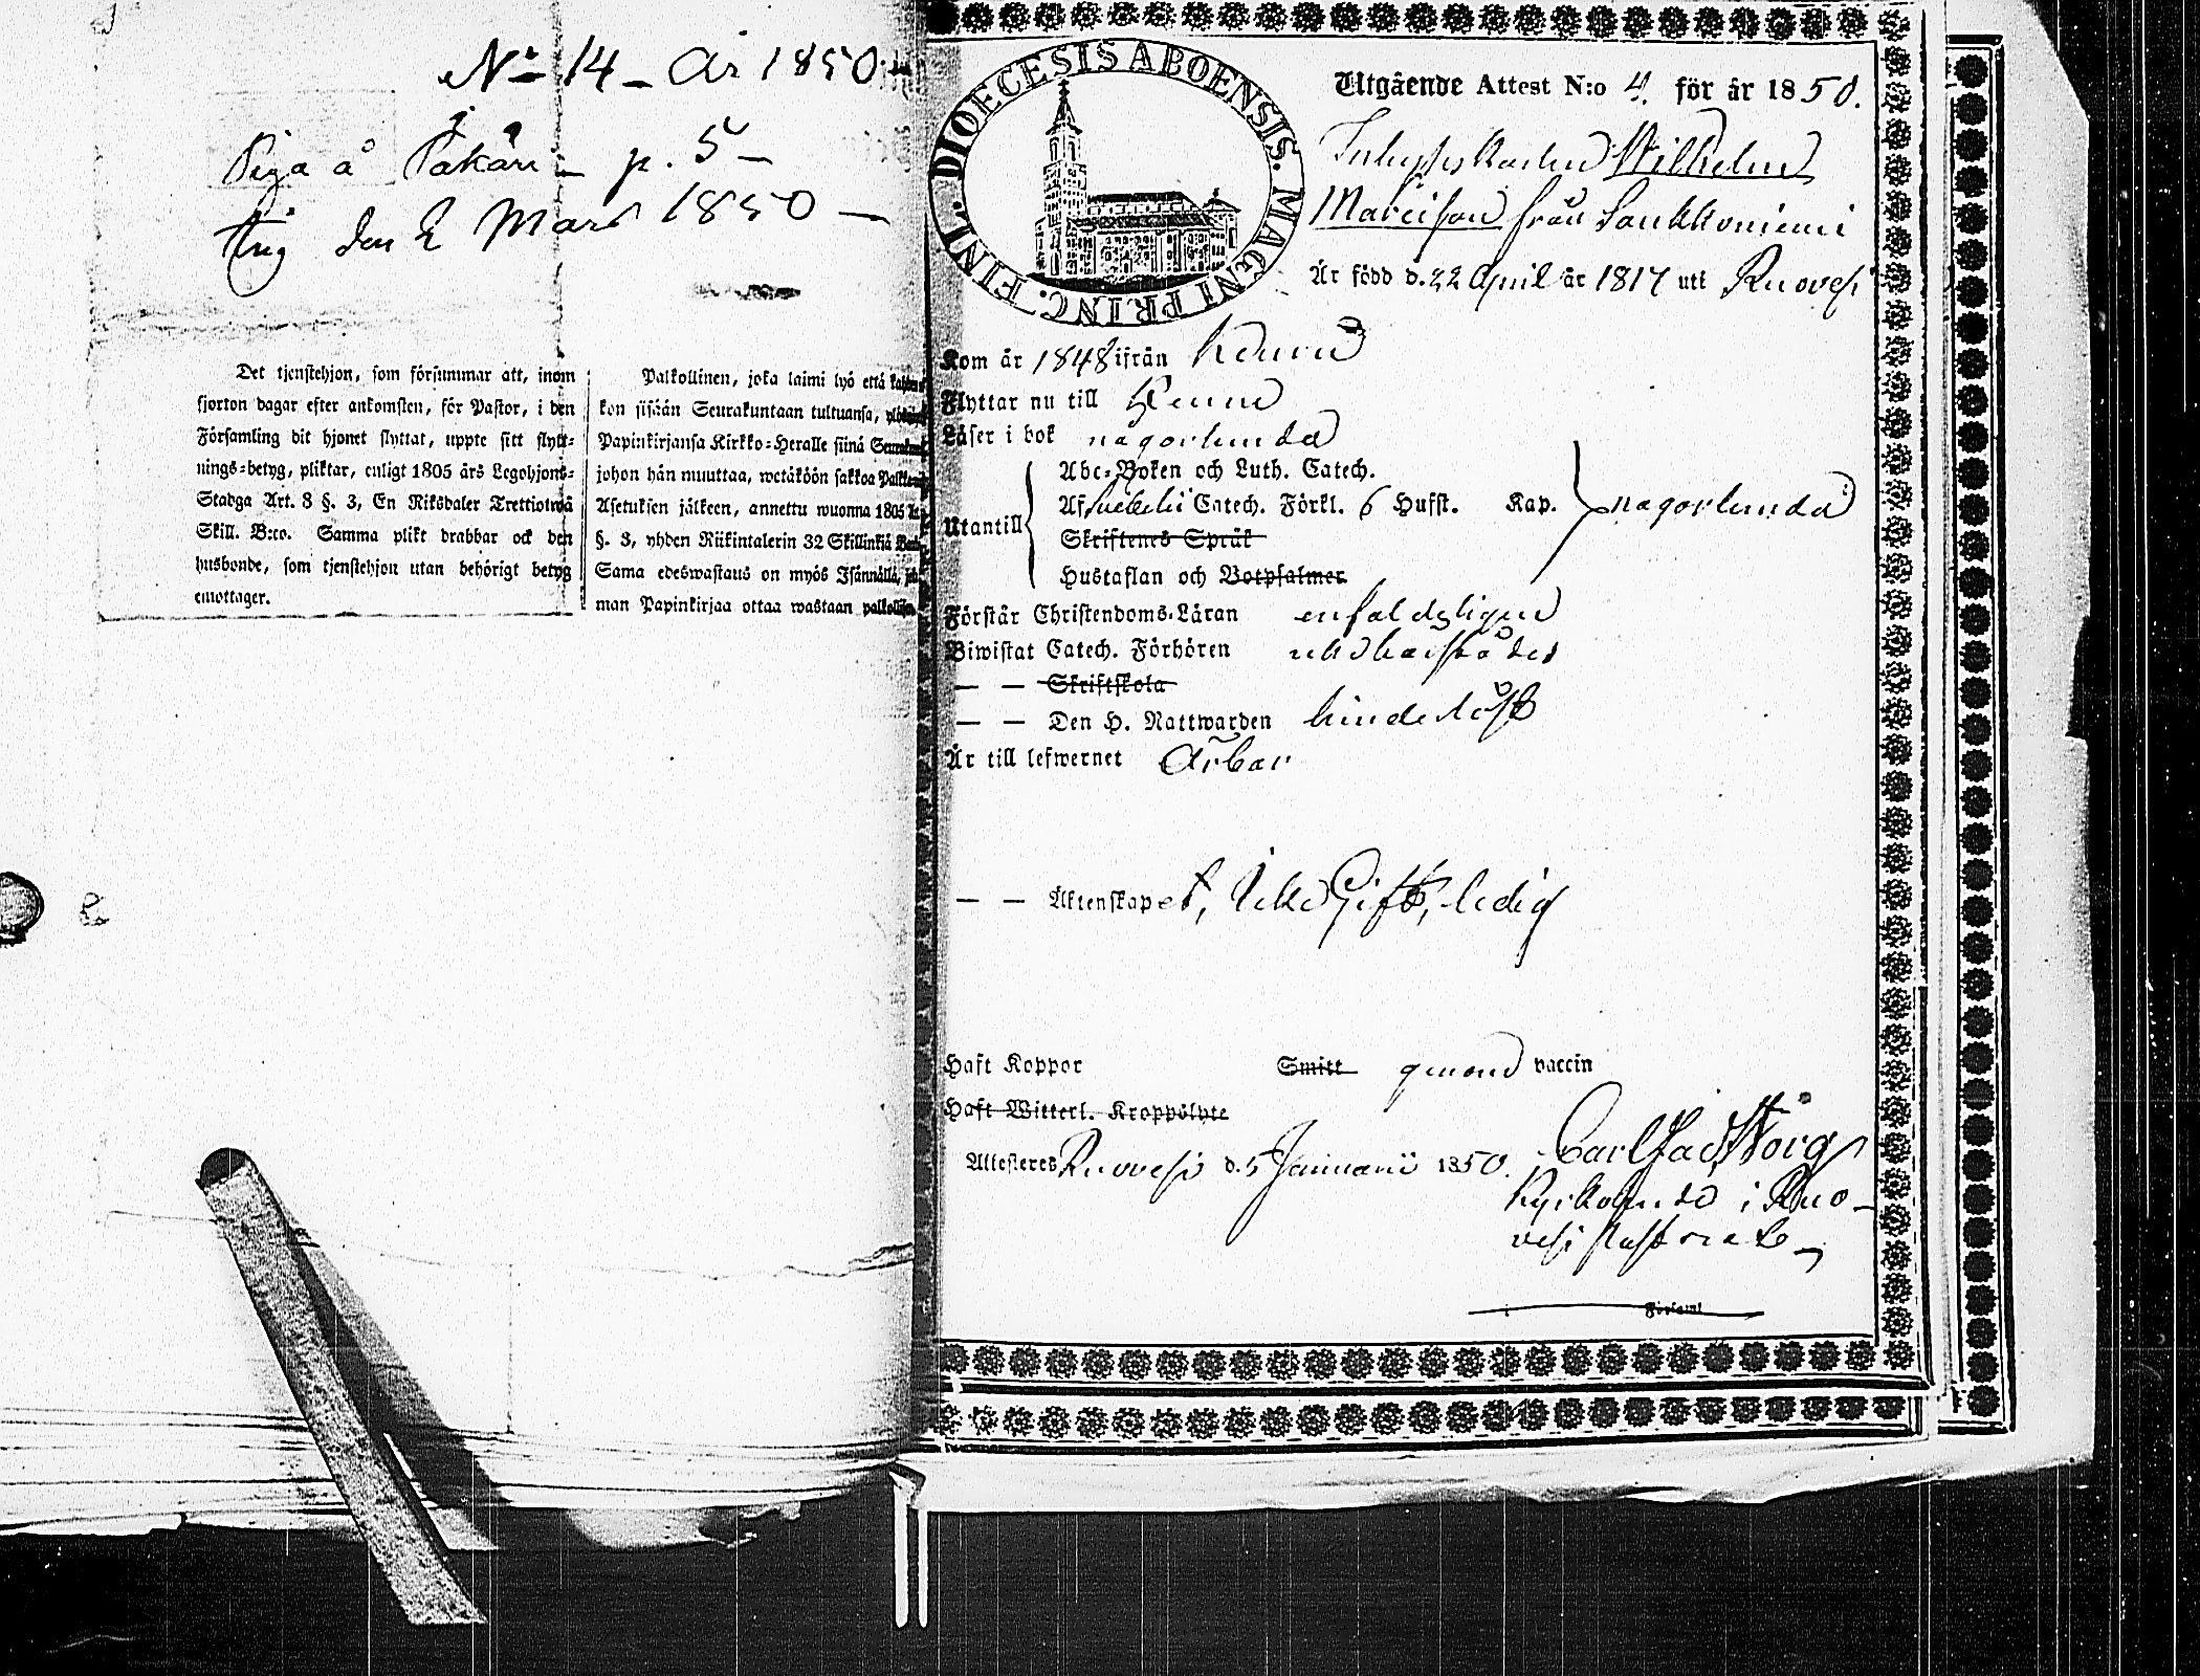 No 14 - År 1850.
Piga å Pakari - p. 5 -
den 2 Mars 1850 -
Det tjenstehjon, som försummar att, inom
fjorton dagar efter ankomsten, för Pastor, i den
Församling dit hjonet flyttat, uppte sitt flytt-
nings-betyg, pliktar, enligt 1805 års Legohjons-
Stadga Art. 8 §. 3, En Riksdaler Trettiotwå
Skill. B:co. Samma plikt drabbar ock den
husbonde, som tjenstehjon utan behörigt betyg
emottager.
Palkollinen, joka laimi lyö että
kon sisään Seurakuntaan tultuansa,
Papinkirjansa Kirkko-Heralle siinä
johon hän muuttaa, wetäköön sakkoa
Asetuksen jälkeen, annettu wuonna 1805
§. 3, yhden Riikintalerin 32 Skillinkiä
Sama edeswastaus on myös Isännällä,
man Papinkirjaa ottaa wastaan
DIOECESIS ABOENSIS. MAGNI PRINC. FINL.
Utgående Attest N:o 4. för år 1850.
Wilhelm
från
Är född d. 22 April år 1817 uti Ruovesi
Kom år 1848 ifrån
Flyttar nu till
Läser i bok någorlunda
Abc-Boken och Luth. Catech.
Utantill Af Svebelii Catech. Förkl. 6 Hufst. Kap. någorlunda
Skriftenes Språk
Hustaflan och Botpsalmer
Förstår Christendoms-Läran enfaldeligen
Biwistat Catech. Förhören
— — Skriftskola
— — Den H. Nattwarden
Är till lefwernet Ärbar
— — Äktenskapet, Icke Gift, ledig
Haft Koppor Smitt genom vaccin
Haft Witterl. Kroppslyte
Attesteres Ruovesi d. 5 Januarii 1850. Carl
Kyrkoherde i Ruo-
vesi Pastorat
i Församl